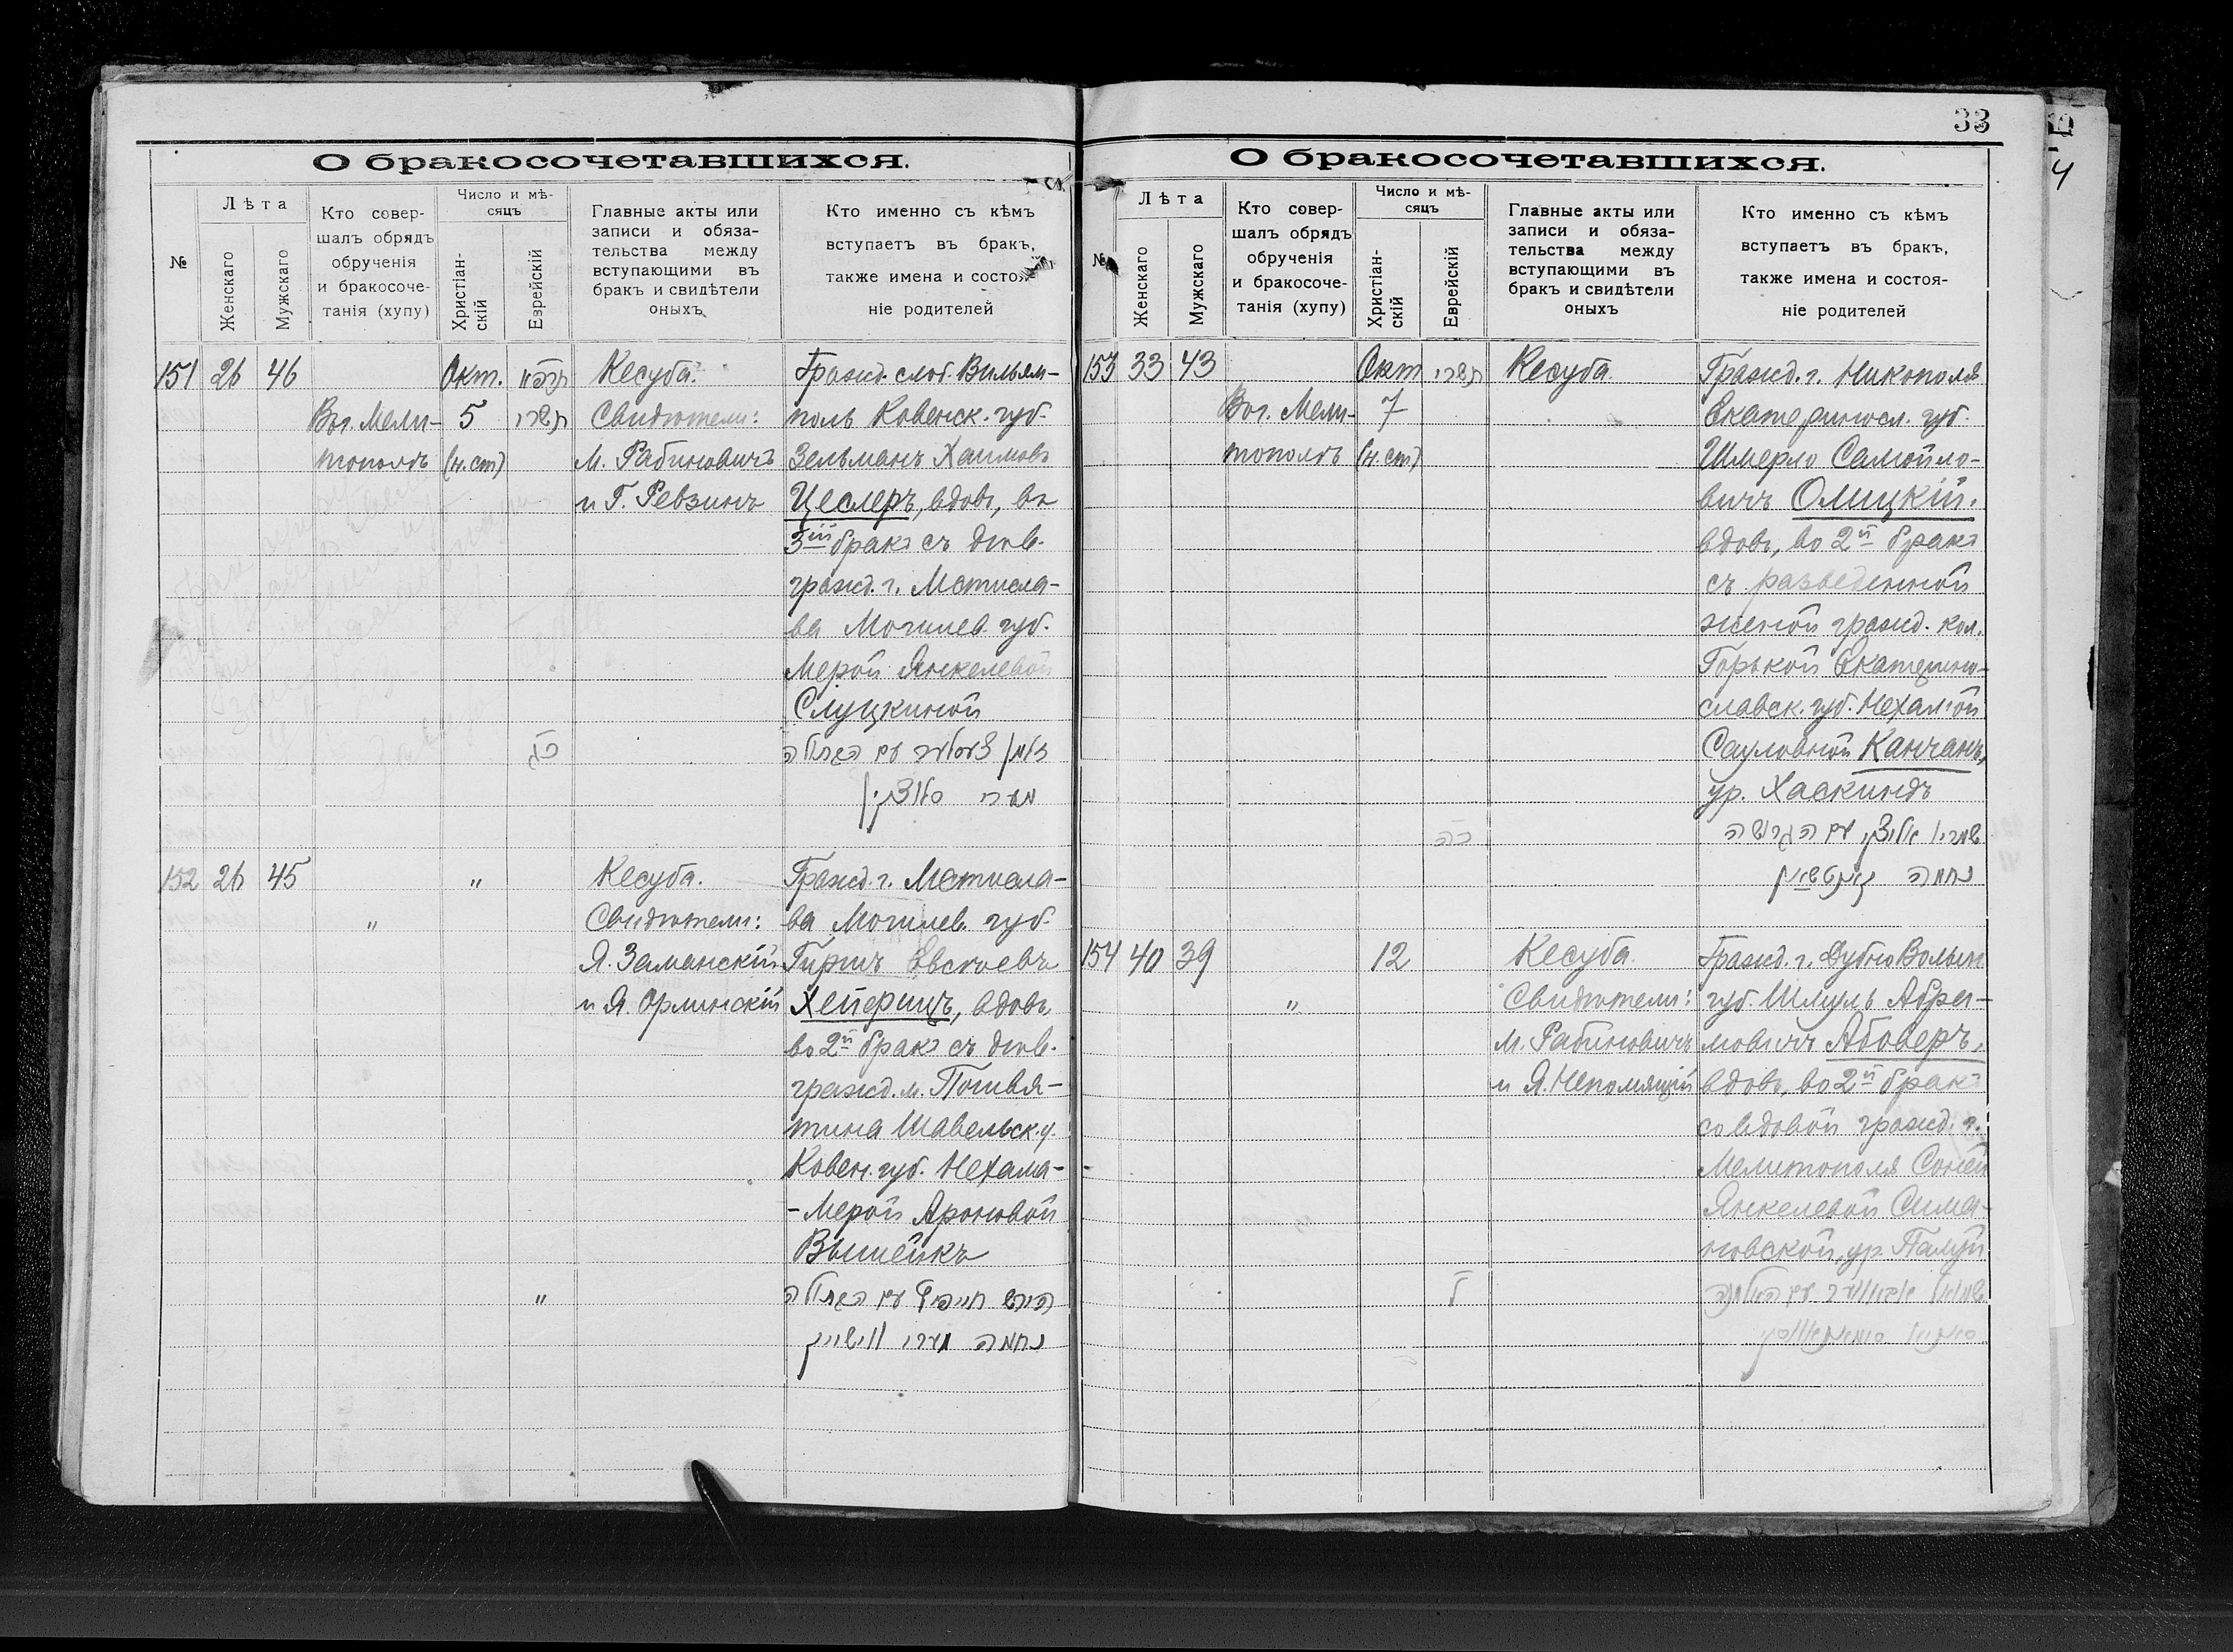 33
4
О бракосочетавшихся.
№
Лѣта
Женскаго
Мужскаго
Кто совер-
шалъ обрядъ
обрученія
и бракосоче-
танія (хупу)
Число и мѣ-
сяцъ
Христіан-
скій
Еврейскій
Главные акты или
записи и обяза-
тельства между
вступающими въ
бракъ и свидѣтели
оныхъ
Кто именно съ кѣмъ
вступаетъ въ бракъ,
также имена и состоя-
ніе родителей
151 26 46
Въ г. Мели-
тополѣ
Окт.
5
(н. ст)
תשרי
כג
Кесуба.
Свидѣтели:
М. Рабиновичъ
и Г. Ревзинъ
Гражд. слоб. Вильям-
поль Ковенск. губ.
Зельманъ Хаимовъ
Цеслеръ, вдов., въ
3ій бракъ съ дѣв.
гражд. г. Мстисла-
ва Могилев. губ.
Мерой Янкелевой
Слуцкиной
זלמן צעסלער עם הבתולה
מערי סלוצקין
152 26 45
"
"
"
Кесуба.
Свидѣтели:
Я. Заманскій
и Я. Орлинскій
Гражд. г. Мстисла-
ва Могилев. губ.
Гиршъ Евсѣевъ
Хейфицъ, вдовъ,
во 2й бракъ съ дѣв.
гражд. м. Пошвя-
тина Шавельск. у.
Ковен. губ. Нехама-
-Мерой Ароновой
Вышейкъ
הירש חייפיץ עם הבתולה
נחמה מערי
О бракосочетавшихся.
№
Лѣта
Женскаго
Мужскаго
Кто совер-
шалъ обрядъ
обрученія
и бракосоче-
танія (хупу)
Число и мѣ-
сяцъ
Христіан-
скій
Еврейскій
Главные акты или
записи и обяза-
тельства между
вступающими въ
бракъ и свидѣтели
оныхъ
Кто именно съ кѣмъ
вступаетъ въ бракъ,
также имена и состоя-
ніе родителей
153 33 43
Въ г. Мели-
тополѣ
Окт
7
(н. ст)
תשרי
כה
Кесуба.
Гражд. г. Никополя
Екатериносл. губ.
Шмерло Самойло-
вичъ Олицкій.
вдовъ, во 2й бракъ
съ разведенной
женой гражд. кол.
Горькой Екатерино-
славск. губ. Нехамой
Сауловной Канчанъ,
ур. Хаскиндъ
שמריל אליצקי עם הגרושה
נחמה קאנטשאן
154 40 39
"
12
ל
Кесуба.
Свидѣтели:
М. Рабиновичъ
и Я. Непомящій
Гражд. г. Дубно Волын
губ. Шмуль Абра-
мовичъ Абоверъ,
вдовъ, во 2й бракъ
со вдовой гражд. г.
Мелитополя Соней
Янкелевой Сима-
новской, ур. Палуй
שמואל עם האלמנה